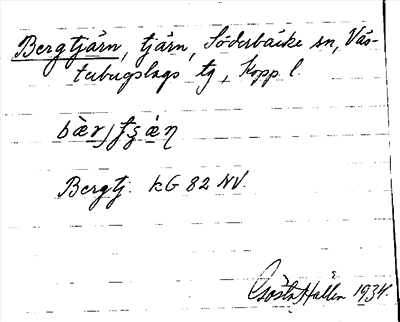 Bergtjärn, tjärn, Söderbärke sn, Väs-
terbergslags tg, Kopp. l.
Bergtj. kG 82 NV.
Gösta Hallén 1934.